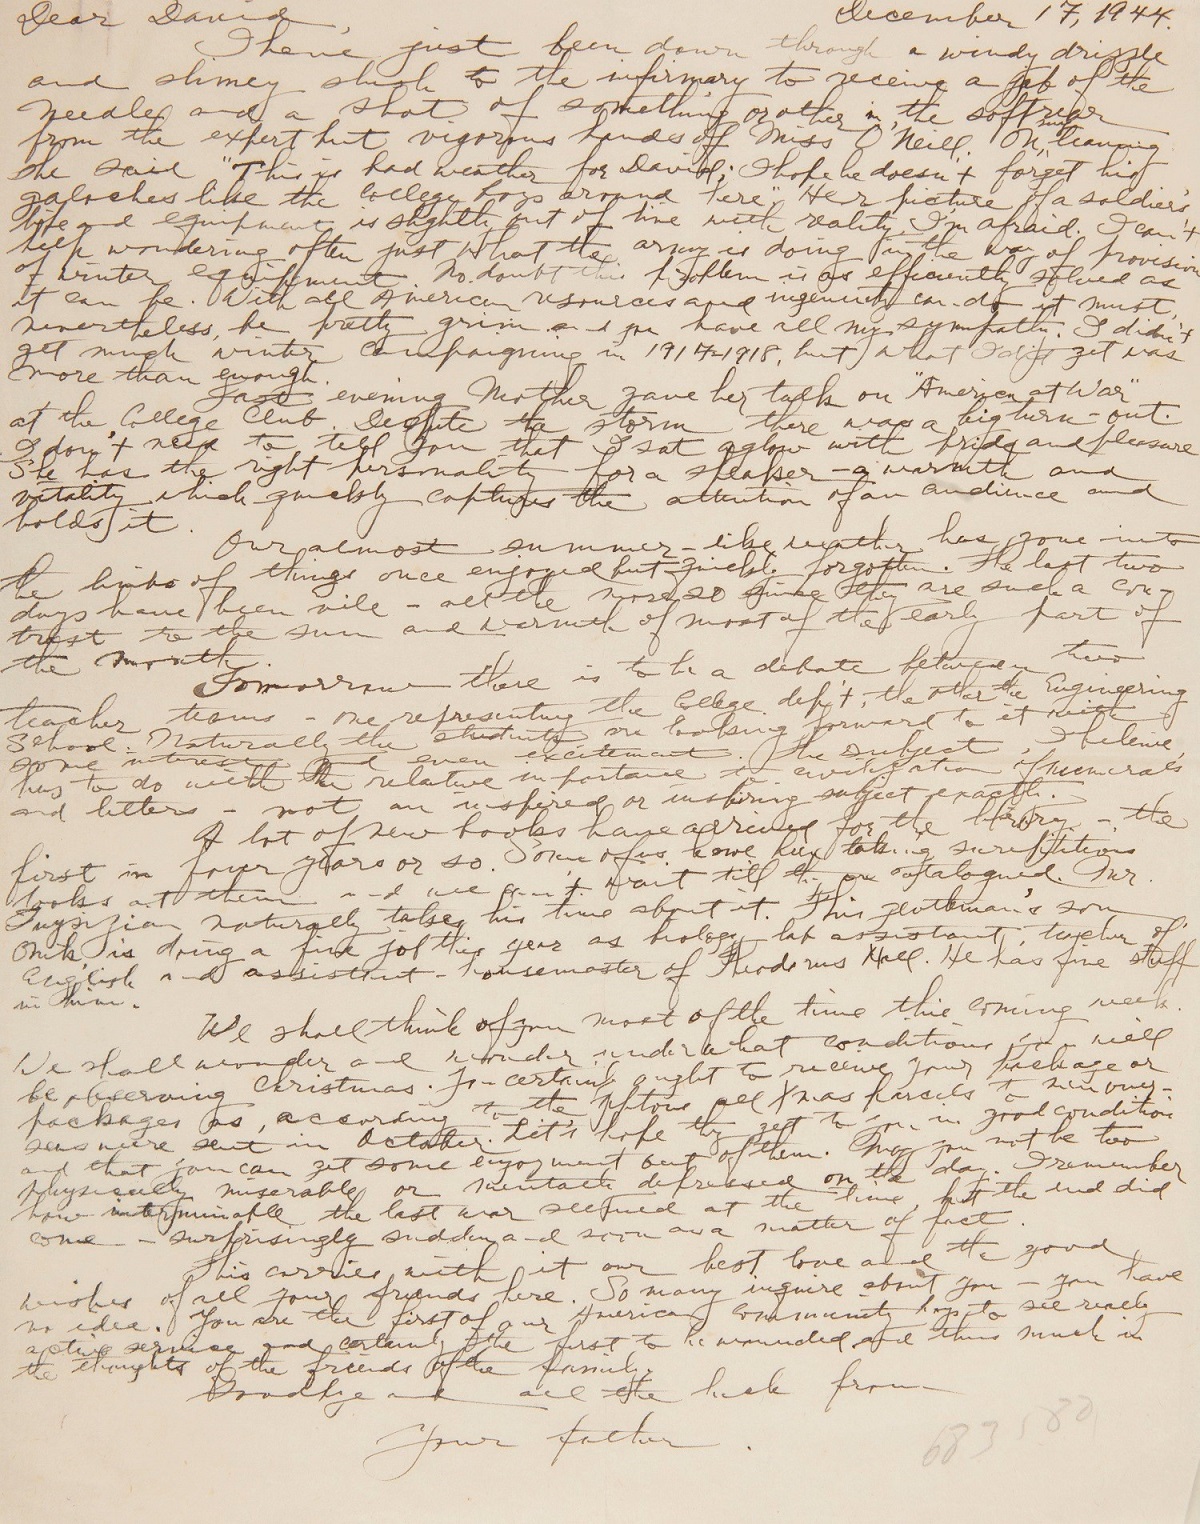 Dear David, December 17, 1944.
I have just been down through a windy drizzle
and slimey slush to the infirmary to receive a jab of the
needle and a shot of something or other in the soft rear
from the expert but vigorous hands of Miss O'Neill. On my leaving
she said "This is bad weather for David; I hope he doesn't forget his
galoches like the College boys around here." Her picture of a soldier's
life and equipment is slightly out of line with reality, I'm afraid. I can't
help wondering often just what the army is doing in the way of provision
of winter equipment. No doubt this problem is as efficiently solved as
it can be. With all American resources and ingenuity can do it must,
nevertheless, be pretty grim and you have all my sympathy. I didn't
get much winter campaigning in 1917-1918, but what I did get was
more than enough.
Last evening Mother gave her talk on "America at War"
at the College Club. Despite the storm there was a big turn-out.
I don't need to tell you that I sat aglow with pride and pleasure
She has the right personality for a speaker - a warmth and
vitality which quickly captures the attention of an audience and
holds it.
Our almost summer-like weather has gone into
the limbo of things once enjoyed but quickly forgotten. The last two
days have been vile - all the more so since they are such a con-
trast to the sun and warmth of most of the early part of
the month.
Tomorrow there is to be a debate between two
teacher teams - one representing the College dep't, the other the Engineering
School. Naturally the students are looking forward to it with
some interest and even excitement. The subject, I believe,
has to do with the relative importance to civilization of numerals
and letters - not an inspired or inspiring subject exactly.
A lot of new books have arrived for the library - the
first in four years or so. Some of us have been taking surreptitious
looks at them and we can't wait till they are catalogued. Mr.
naturally takes his time about it. This gentleman's son
is doing a fine job this year as biology lab assistant, teacher of
English and assistant-housemaster of Theodorus Hall. He has fine stuff
in him.
We shall think of you most of the time this coming week.
We shall wonder and wonder under what conditions you will
be observing Christmas. You certainly ought to receive your package or
packages as, according to the all Xmas parcels to men over-
seas were sent in October. Let's hope they get to you in good condition
and that you can get some enjoyment out of them. May you not be too
physically miserable or mentally depressed on the day. I remember
how interminable the last war seemed at the time, but the end did
come - surprisingly sudden and soon as a matter of fact.
This carries with it our best love and the good
wishes of all your friends here. So many inquire about you - you have
no idea. You are the first of our American community boys to see really
active service and certainly the first to be wounded and thus much in
the thoughts of the friends of the family.
Goodbye and all the luck from
Your father.
683 580